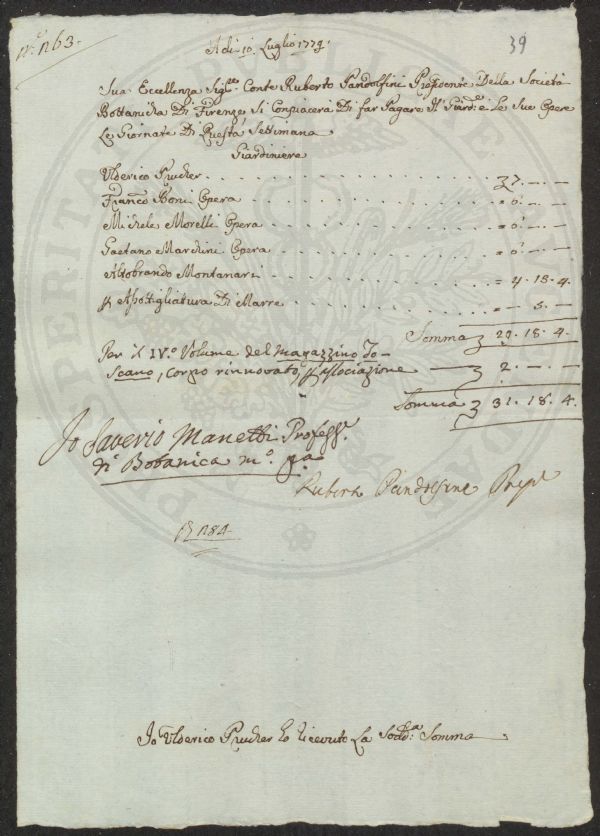 n.° 1163.
39
A dì 10. Luglio 1779.
Sua Eccellenza Sig.re Conte Ruberto Pandolfini Presidente Della Società
Bottanicha Di Firenze Si Conpiacerà Di far Pagare Il Giard.e e Le Sue Opere
Le Giornate Di Questa Settimana
Giardiniere
Ulderico Prucher . . . . 7. — —
Franco Boni Opera . . . . = 6. — —
Michele Morelli Opera . . . . = 6. — —
Gaetano Mardini Opera . . . . = 6. — —
Altobrando Montanari . . . . = 4. 13. 4.
p Aportigliatura Di Marre . . . . = —. 5. —
Somma 29. 18. 4.
Per il IV.° Volume del Magazzino To-
scano, corpo rinnovato, p associazione — 2. — —
Somma 31. 18. 4.
Io Saverio Manetti Profess.e
di Botanica m.° p.a
Ruberto Pandolfini Presid.
1184
Io Ulderico Prucher ho ricevuto La Sodd.a Somma